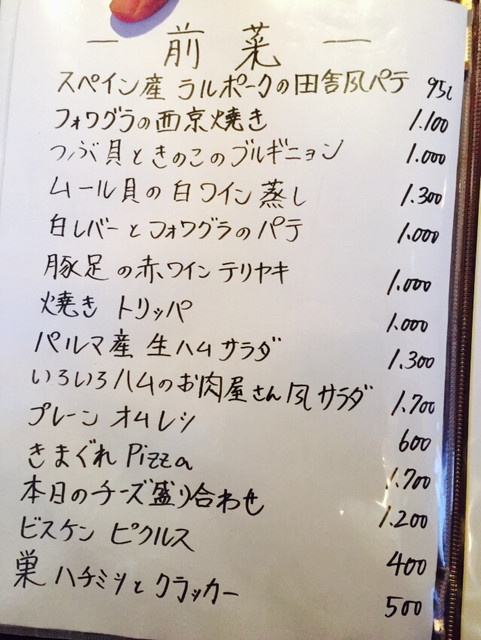 ― 前菜 ―
スペイン産 ラルポークの田舎風パテ 950
フォワグラの西京焼き 1.100
つぶ貝ときのこのブルギニョン 1.000
ムール貝の白ワイン蒸し 1.300
白レバーとフォワグラのパテ 1.000
豚足の赤ワインテリヤキ 1.000
焼き トリッパ 1.000
パルマ産 生ハムサラダ 1.300
いろいろハムのお肉屋さん風サラダ 1.700
プレーンオムレツ 600
きまぐれ Pizza 1.700
本日のチーズ盛り合わせ 1.200
ビスケン ピクルス 400
巣ハチミツとクラッカー 500